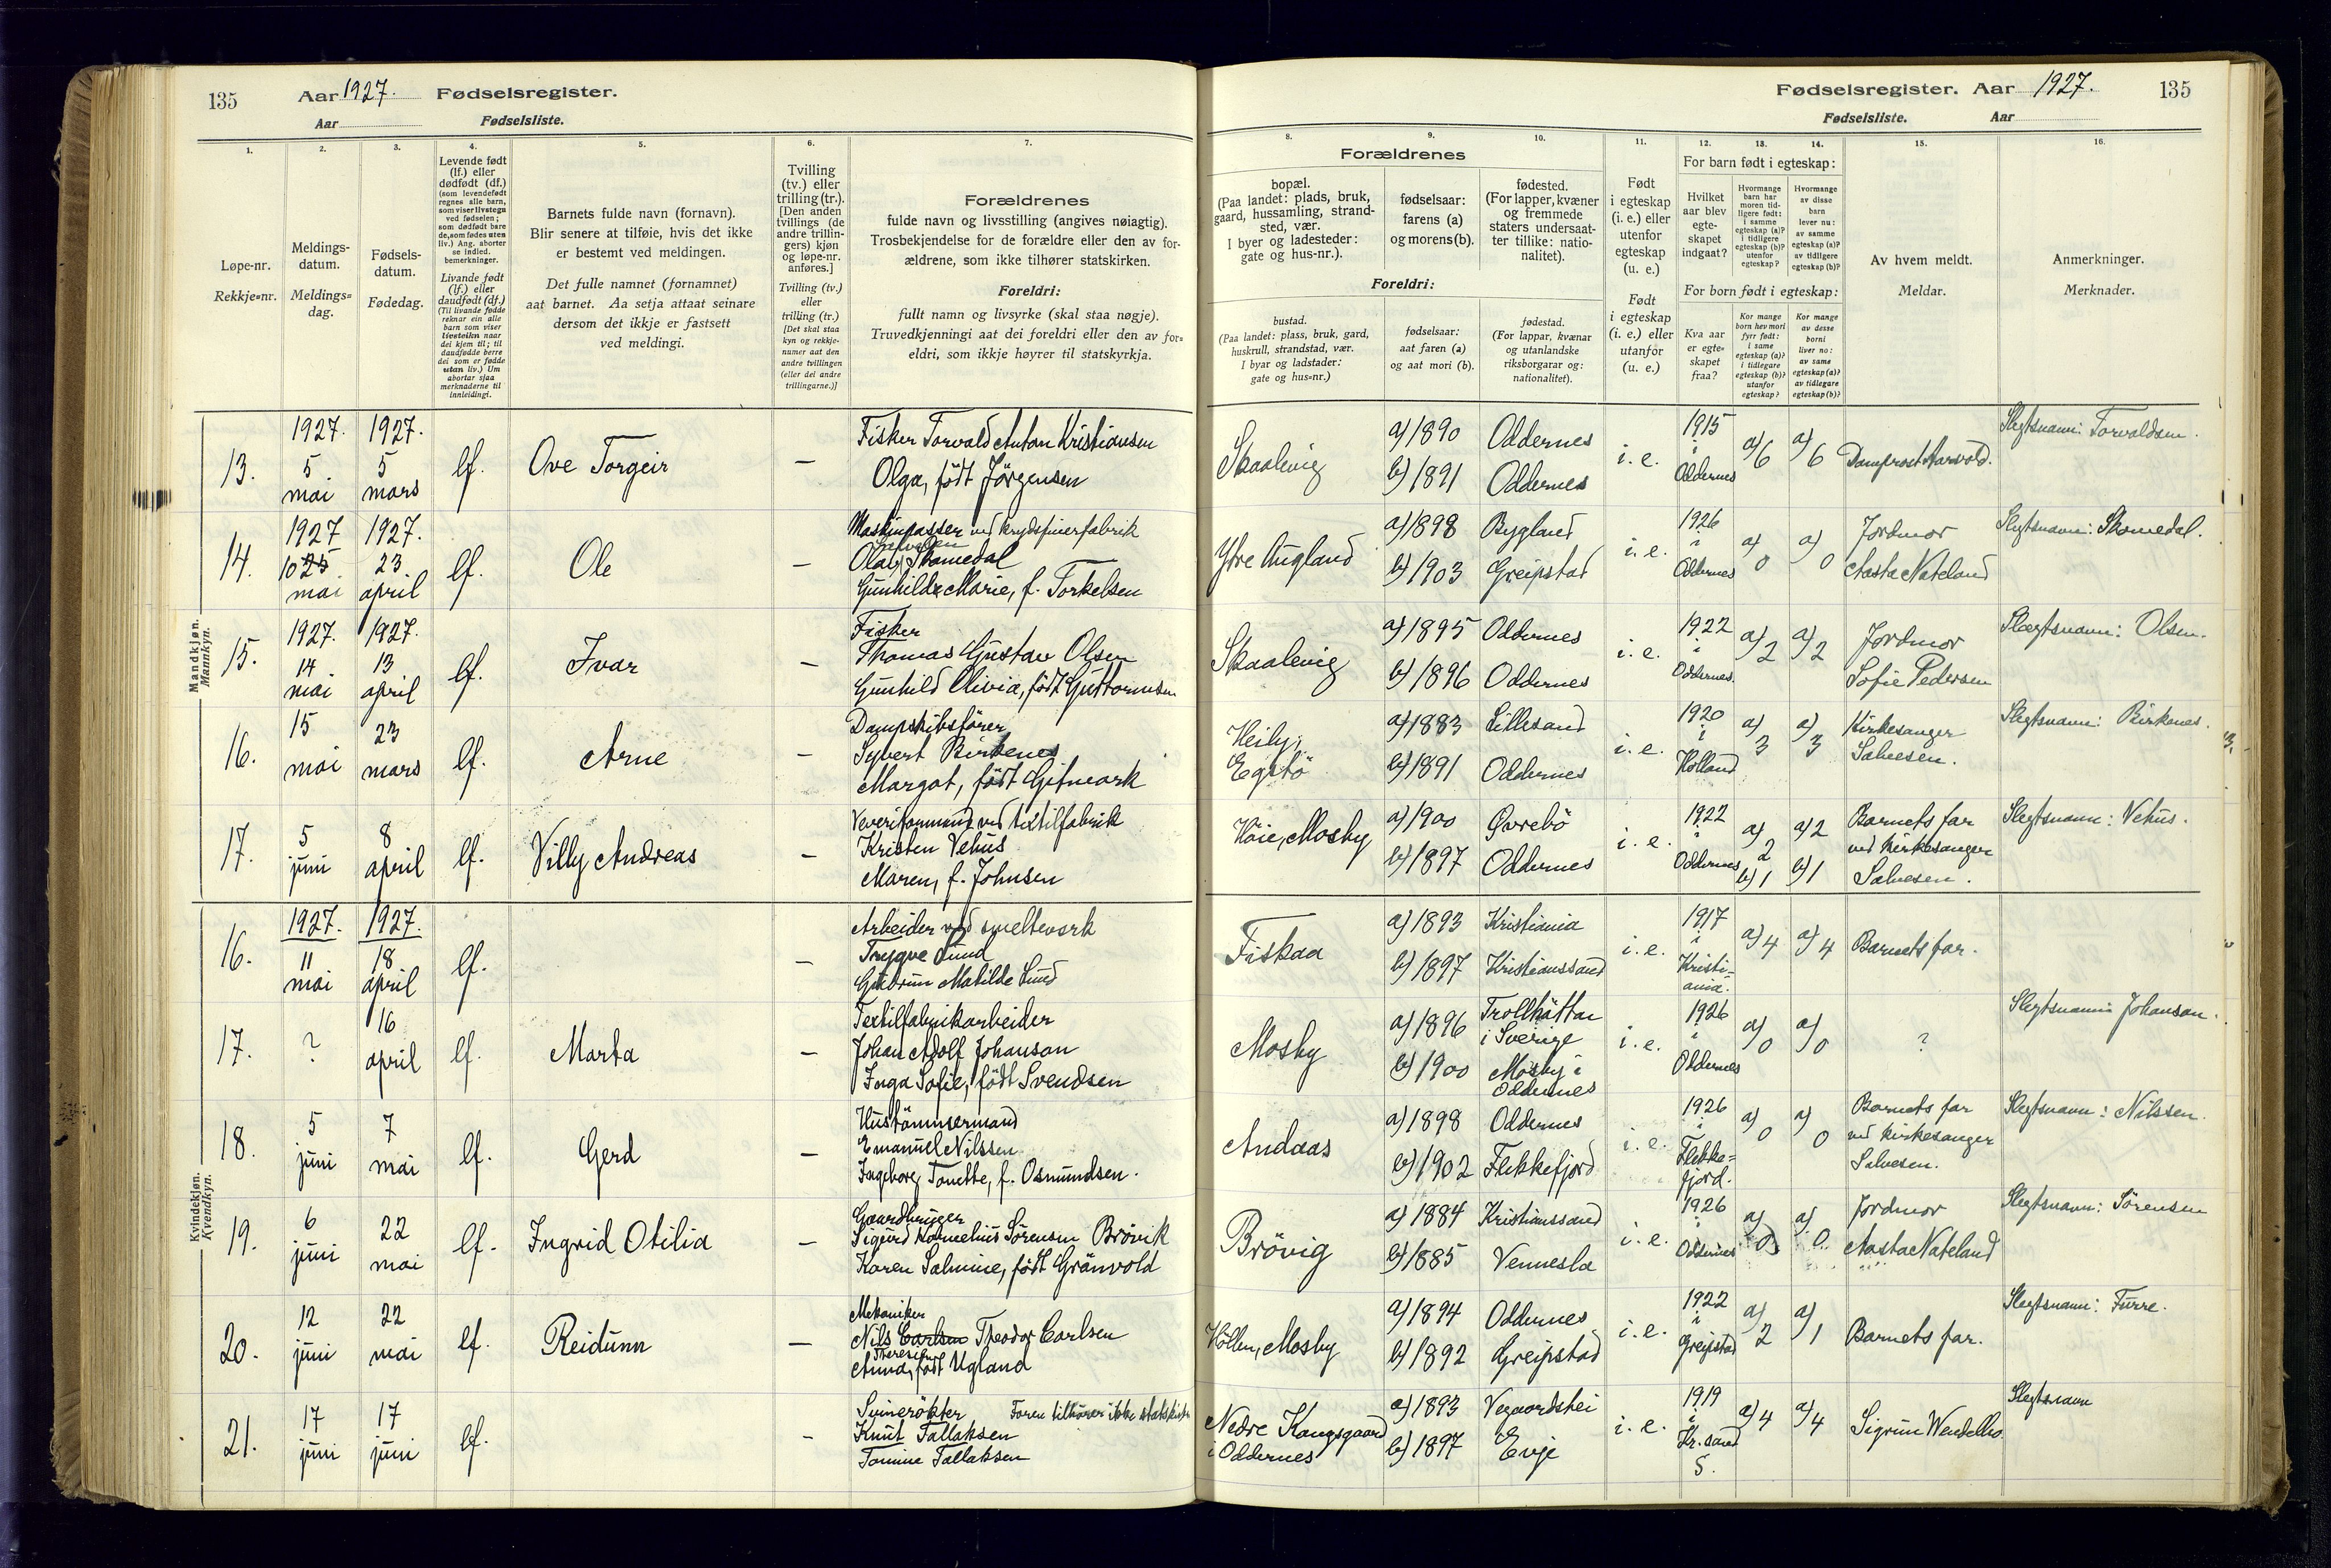 135 Aar 1927. Fødselsregister.
Aar Fødselsliste.
1. 2. 3. 4. 5. 6. 7.
Løpe-nr.
Rekkje=nr.
Meldings-
datum.
Meldings=
dag.
Fødsels-
datum.
Fødedag.
Levende født
(lf.) eller
dødfødt (df.)
(som levendefødt
regnes alle barn,
som viser livstegn
ved fødselen;
som dødfødt bare
de, som fødes uten
liv.) Ang. aborter
se indled.
bemerkninger.
Livande født
(lf.) eller
daudfødt (df.)
(Til livande fødde
reknar ein alle
barn som viser
livsteikn naar
dei kjem til; til
daudfødde berre
dei som er fødde
utan liv.) Um
abortar sjaa
merknaderne til
innleidingi.
Barnets fulde navn (fornavn).
Blir senere at tilføie, hvis det ikke
er bestemt ved meldingen.
Det fulle namnet (fornamnet)
aat barnet. Aa setja attaat seinare
dersom det ikkje er fastsett
ved meldingi.
Tvilling
(tv.) eller
trilling (tr.).
[Den anden
tvillings (de
andre trillin-
gers) kjøn
og løpe-nr.
anføres.]
Tvilling (tv.)
eller
trilling (tr.)
[Det skal staa
kyn og rekkje-
numer aat den
andre tvillingen
(eller dei andre
trillingarne.)]
Forældrenes
fulde navn og livsstilling (angives nøiagtig).
Trosbekjendelse for de forældre eller den av for-
ældrene, som ikke tilhører statskirken.
Foreldri:
fullt namn og livsyrke (skal staa nøgje).
Truvedkjenningi aat dei foreldri eller den av for=
eldri, som ikkje høyrer til statskyrkja.
Mandkjøn.
Mannkyn.
13. 1927. 5 mai 1927. 5 mars lf. Ove Torgeir —
Fisker Torvald Anton Kristiansen
Olga, født Jörgensen
14. 1927 10 25 mai 1927. 23 april lf. Ole —
Maskinpasser ved krydsfinerfabrik
Olav Skomedal
Gunhilda Marie, f. Torkelsen
15. 1927. 14 mai 1927. 13 april lf. Ivar —
Fisker
Thomas Gustav Olsen
Gunhild Olivia, født Guttormsen
16. 15 mai 23 mars lf. Arne —
Dampskibsfører
Syvert Birkenes
Margot, født Gitmark
17. 5 juni 8 april lf. Villy Andreas —
Veveriformand ved textilfabrik
Kristen Vehus
Maren, f. Johnsen
Kvindekjøn.
Kvendkyn.
16. 1927. 11 mai 1927. 18 april lf. —
Arbeider ved smelteverk
Trygve Lund
Gudrun Matilde Lund
17. ? 16 april lf. Marta —
Textilfabrikarbeider
Johan Adolf Johanson
Inga Sofie, født Svendsen
18. 5 juni 7 mai lf. Gerd —
Hustömmermand
Emanuel Nilssen
Ingeborg Tonette, f. Osmundsen.
19. 6 juni 22 mai lf. Ingrid Otilia —
Gaardbruger
Sigurd Kornelius Sörensen Brövik
Karen Salmine, født Grånvold
20. 12 juni 22 mai lf. Reidunn —
Mekaniker
Nils Carlsen Theodor Carlsen
Theresie
Anna, født Ugland
21. 17 juni 17 juni lf. -
Svinerökter Faren tilhører ikke statskirken
Knut Tallaksen
Tomine Tallaksen
Fødselsregister. Aar 1927. 135
Fødselsliste. Aar
8. 9. 10. 11. 12. 13. 14. 15. 16.
Forældrenes
bopæl.
(Paa landet: plads, bruk,
gaard, hussamling, strand-
sted, vær.
I byer og ladesteder:
gate og hus-nr.).
fødselsaar:
farens (a)
og morens (b).
fødested.
(For lapper, kvæner
og fremmede
staters undersaat-
ter tillike: natio-
nalitet).
Foreldri:
bustad.
(Paa landet: plass, bruk, gard,
huskrull, strandstad, vær.
I byar og ladstader:
gate og hus=nr.)
fødselsaar:
aat faren (a)
og aat mori (b).
fødestad.
(For lappar, kvænar
og utanlandske
riksborgarar og:
nationalitet).
Født
i egteskap
(i. e.) eller
utenfor
egteskap
(u. e.)
Født
i egteskap
(i. e.) eller
utanfor
egteskap
(u. e.)
For barn født i egteskap:
Hvilket
aar blev
egte-
skapet
indgaat?
Hvormange
barn har
moren tid-
ligere født:
i samme
egteskap (a)?
i tidligere
egteskap (b)?
utenfor
egteskap?
Hvormange
av disse
barn
lever nu:
av samme
egteskap (a)?
av tidligere
egteskap (b)?
For born født i egteskap:
Kva aar
er egte=
skapet
fraa?
Kor mange
born hev mori
fyrr født:
i same
egteskap (a)?
i tidlegare
egteskap (b)?
utanfor
egteskap?
Kor mange
av desse
borni
liver no:
av same
egteskap (a)?
av tidlegare
egteskap (b)?
Av hvem meldt.
Meldar.
Anmerkninger.
Merknader.
Skaalevig a) 1890 Oddernes b) 1891 Oddernes i. e. 1915 i Oddernes a) 6 a) 6 Slegtsnavn: Torvaldsen.
Ytre Augland a) 1898 Bygland b) 1903 Greipstad i. e. 1926 i Oddernes a) 0 a) 0 Jordmor Aasta Nateland Slegtsnavn: Skomedal.
Skaalevig a) 1895 Oddernes b) 1896 Oddernes i. e. 1922 i Oddernes. a) 2 a) 2 Jordmor Sofie Pedersen Slegtsnavn: Olsen.
Egstö a) 1883 Lillesand b) 1891 Oddernes i. e. 1920 i Holland a) 3 a) 3 Kirkesanger Salvesen. Slegtsnavn: Birkenes.
Höie, Mosby a) 1900 Øvrebö b) 1897 Oddernes i. e. 1922 i Oddernes a) 2 b) 1 a) 2 b) 1 Barnets far ved kirkesanger Salvesen. Slegtsnavn: Vehus.
Fiskaa a) 1893 Kristiania b) 1897 Kristianssand i. e. 1917 i Kristi-
ania. a) 4 a) 4 Barnets far.
Mosby a) 1896 Trollhättan i Sverige b) 1900 Mosby i Oddernes i. e. 1926 i Oddernes a) 0 a) 0 ? Slegtsnavn: Johanson.
Andaas a) 1898 Oddernes b) 1902 Flekkefjord i. e. 1926 i Flekke=
fjord. a) 0 a) 0 Barnets far ved kirkesanger Salvesen. Slegtsnavn: Nilssen.
Brövig a) 1884 Kristianssand b) 1885 Vennesla i. e. 1926 i Oddernes a) 0 a) 0 Jordmor Aasta Nateland Slegtsnavn: Sörensen
Höllen, Mosby a) 1894 Oddernes b) 1892 Greipstad i. e. 1922 i Greipstad a) 2 a) 1 Barnets far. Slegtsnavn: Furre.
Nedre Kongsgaard i Oddernes a) 1893 Vegaardshei b) 1897 Evje i. e. 1919 i Kr.sand S. a) 4 a) 4 Sigrun Slegtsnavn